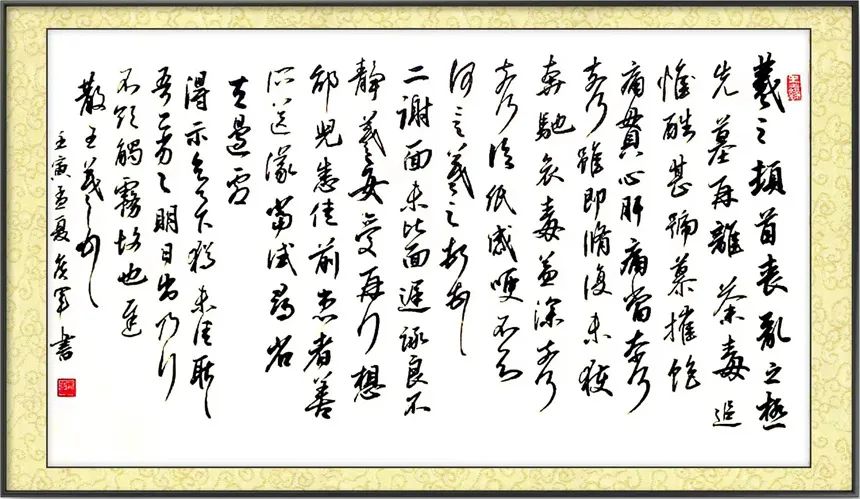 羲之頓首喪亂之極
先墓再離荼毒追
惟酷甚號慕摧絶
痛貫心肝痛當奈何
奈何雖即脩復未獲
奔馳哀毒益深奈何
奈何臨紙感哽不知
何言羲之頓首
二謝面未比面遲詠良不
靜羲之女愛再拜想
邰兒悉佳前患者善
所送議當試尋省
左邊劇
得示知足下猶未佳耿耿
吾亦劣劣明日出乃行
不欲觸霧故也遲
散王羲之頓首
壬寅孟夏 軍書